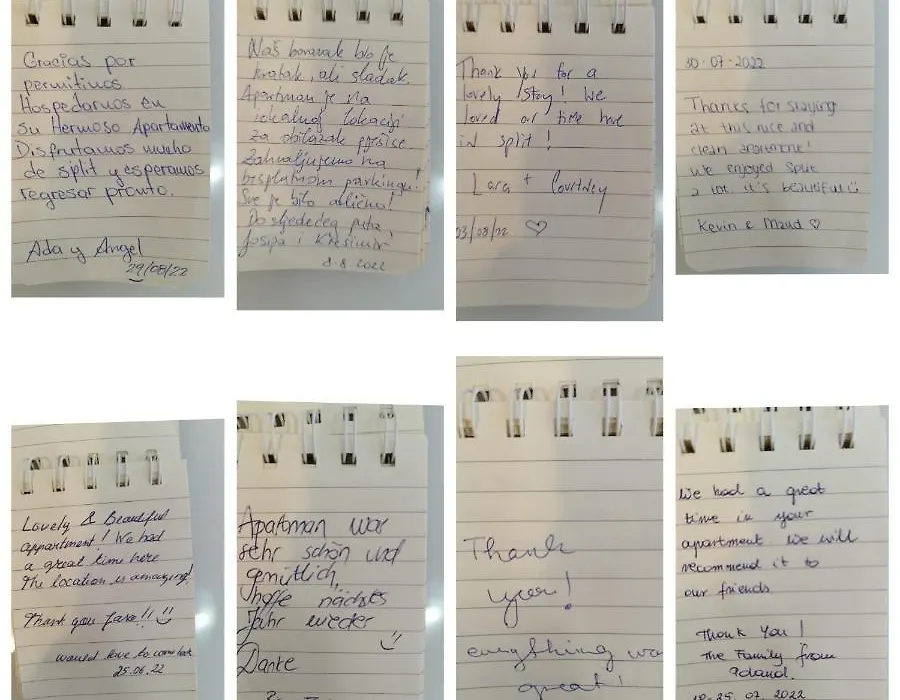 Gracias por
permitirnos
Hospedarnos en
su Hermoso Apartamento
Disfrutamos mucho
de split y esperamos
regresar pronto.
Ada y Angel
29/08/22
Naš boravak bio je
kratak, ali sladak.
Apartman je na
idealnoj lokaciji
za obilazak pješice.
Zahvaljujemo na
besplatnom parkingu!
Sve je bilo odlično!
Do sljedećeg puta,
Josipa i Krešimir
8.8.2022
Thank you for a
lovely stay! We
loved our time here
in split!
Lara + Courtney
03/08/22 ♡
30.07.2022
Thanks for staying
at this nice and
clean apartment!
We enjoyed Split
a lot. it's beautiful
Kevin & Maud ♡
Lovely & Beautiful
appartment! We had
a great time here
The location is amazing!
Thank you Jaxa!!
would love to come back
25.06.22
Apartman war
sehr schön und
gemütlich,
hoffe nächstes
Jahr wieder
Danke
Thank
you!
everything wa
great!
We had a great
time in your
apartment. We will
recommend it to
our friends
Thank You!
The Family from
Poland.
07.2022